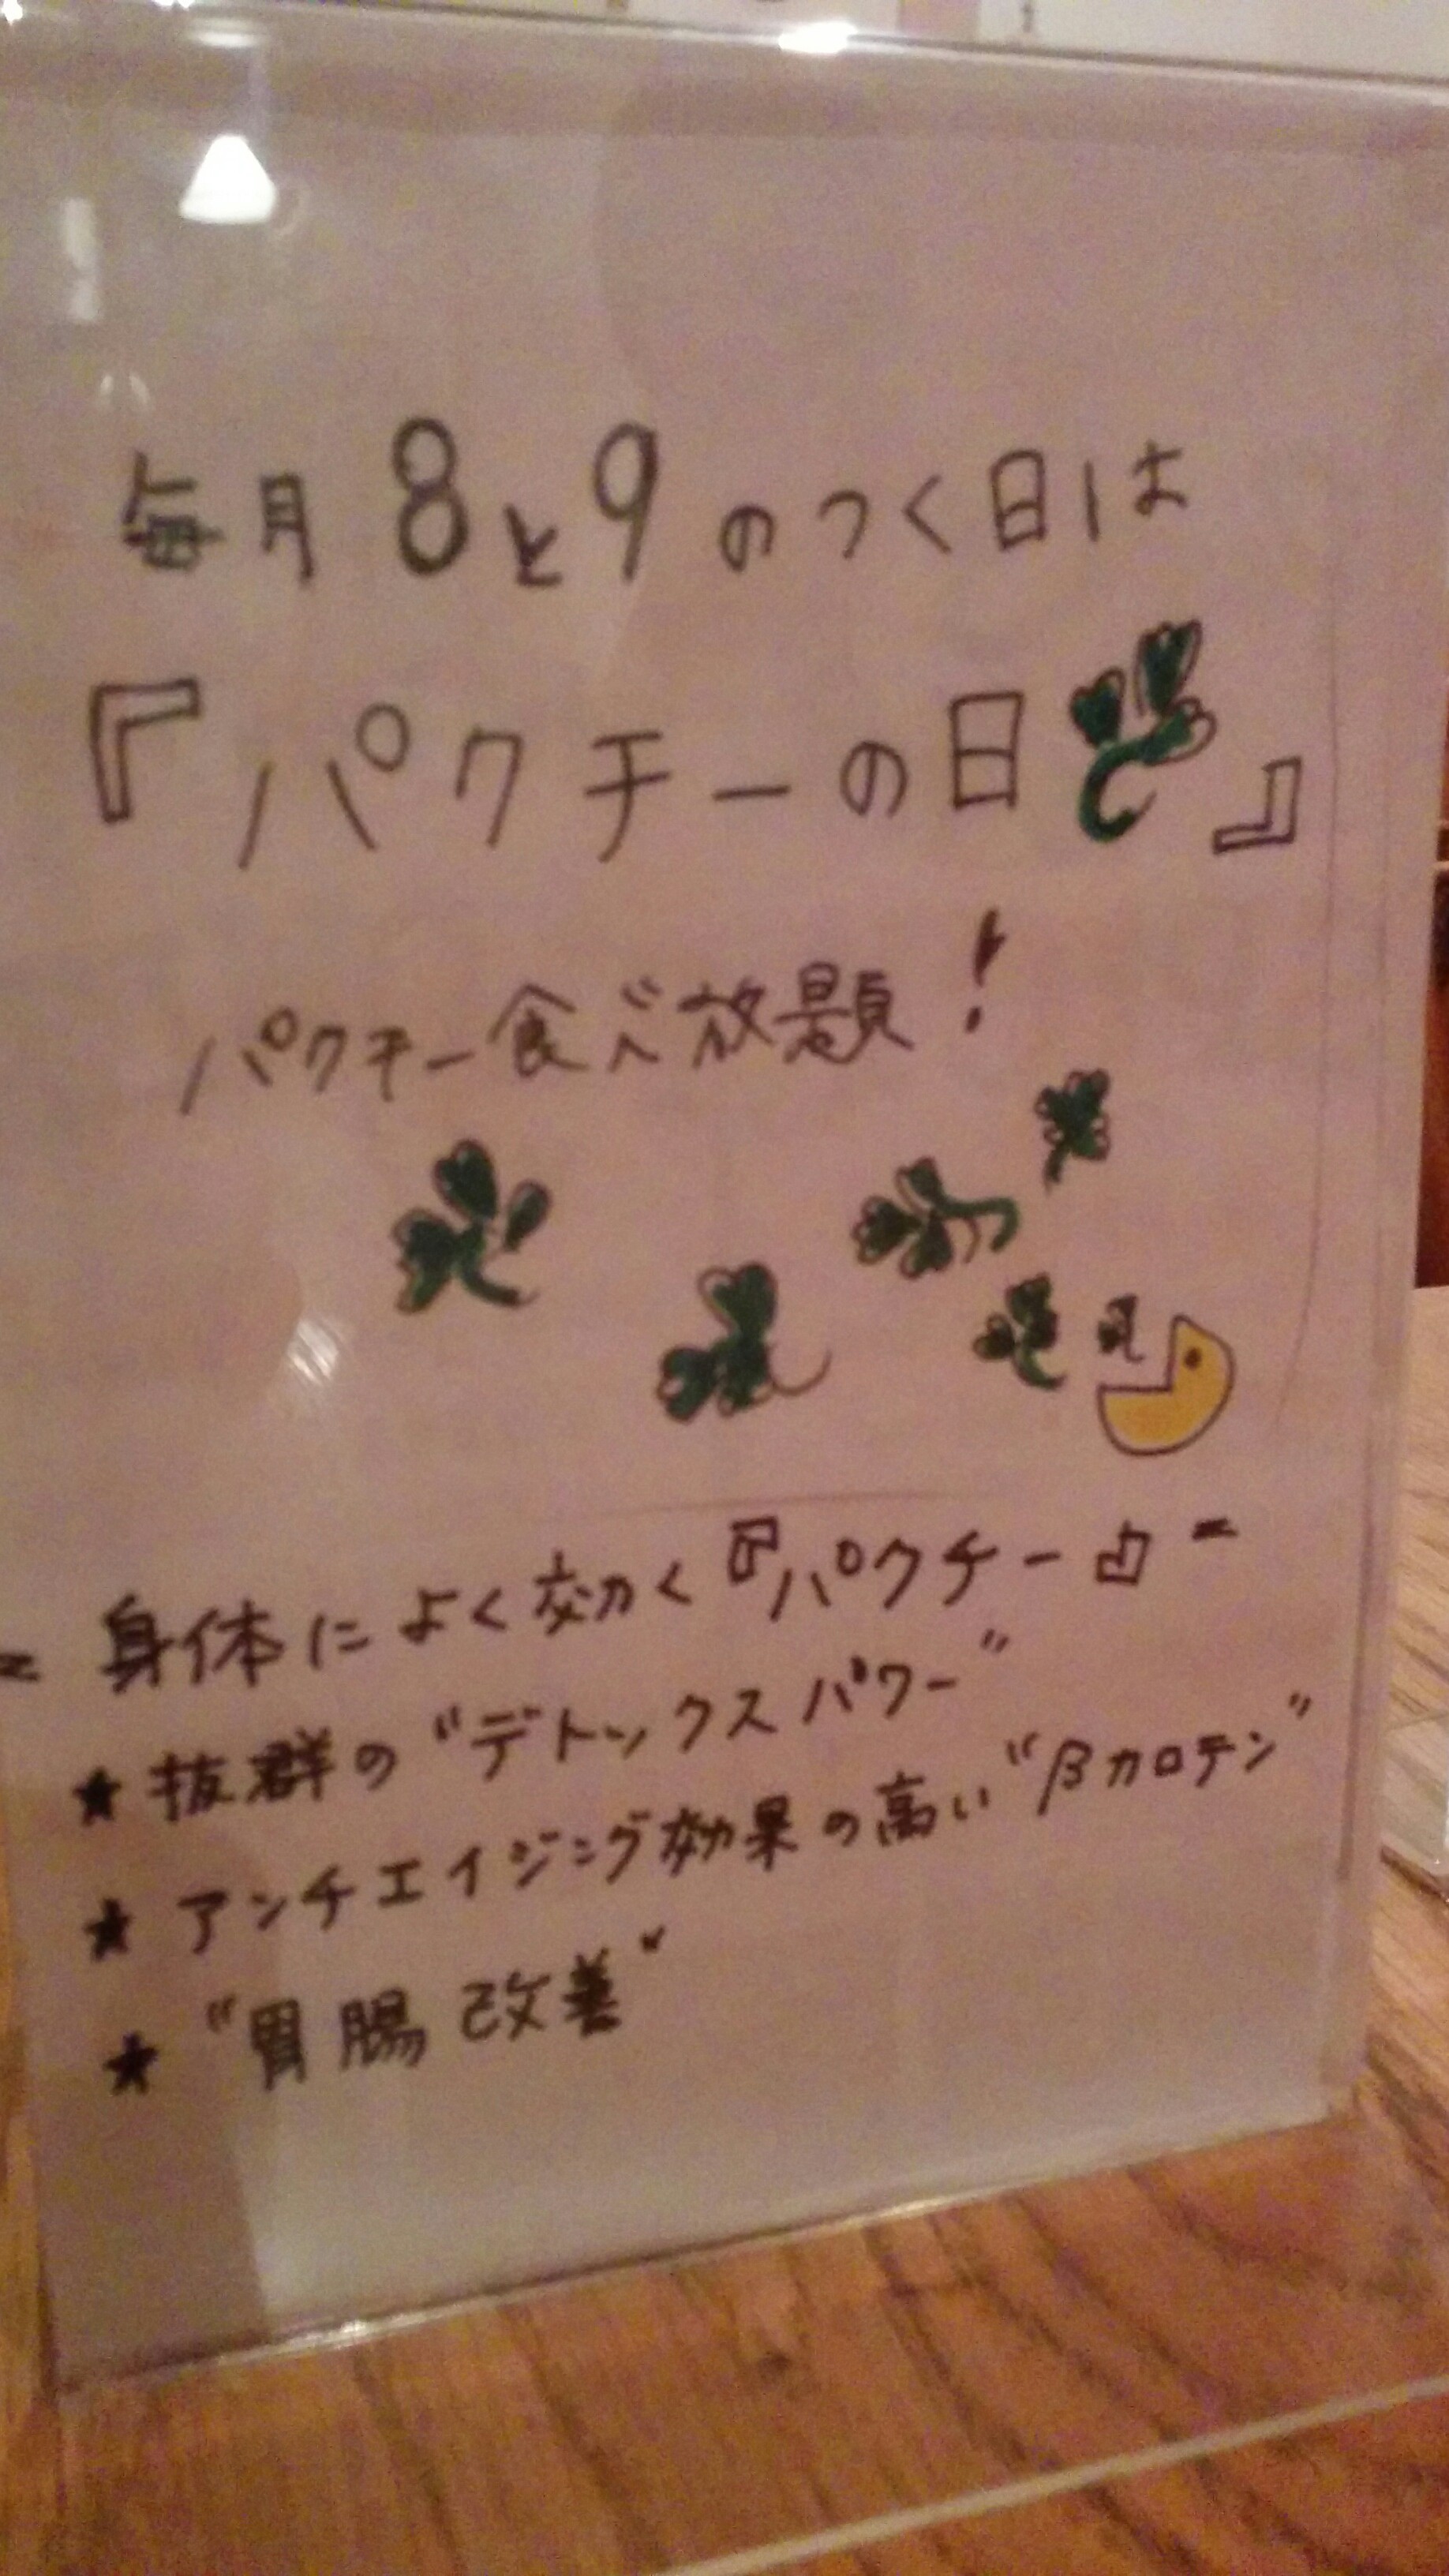 毎月8と9のつく日は
『パクチーの日』
パクチー食べ放題！
- 身体によく効く『パクチー』-
★ 抜群の“デトックスパワー”
★ アンチエイジング効果の高い“βカロテン”
★ “胃腸改善”